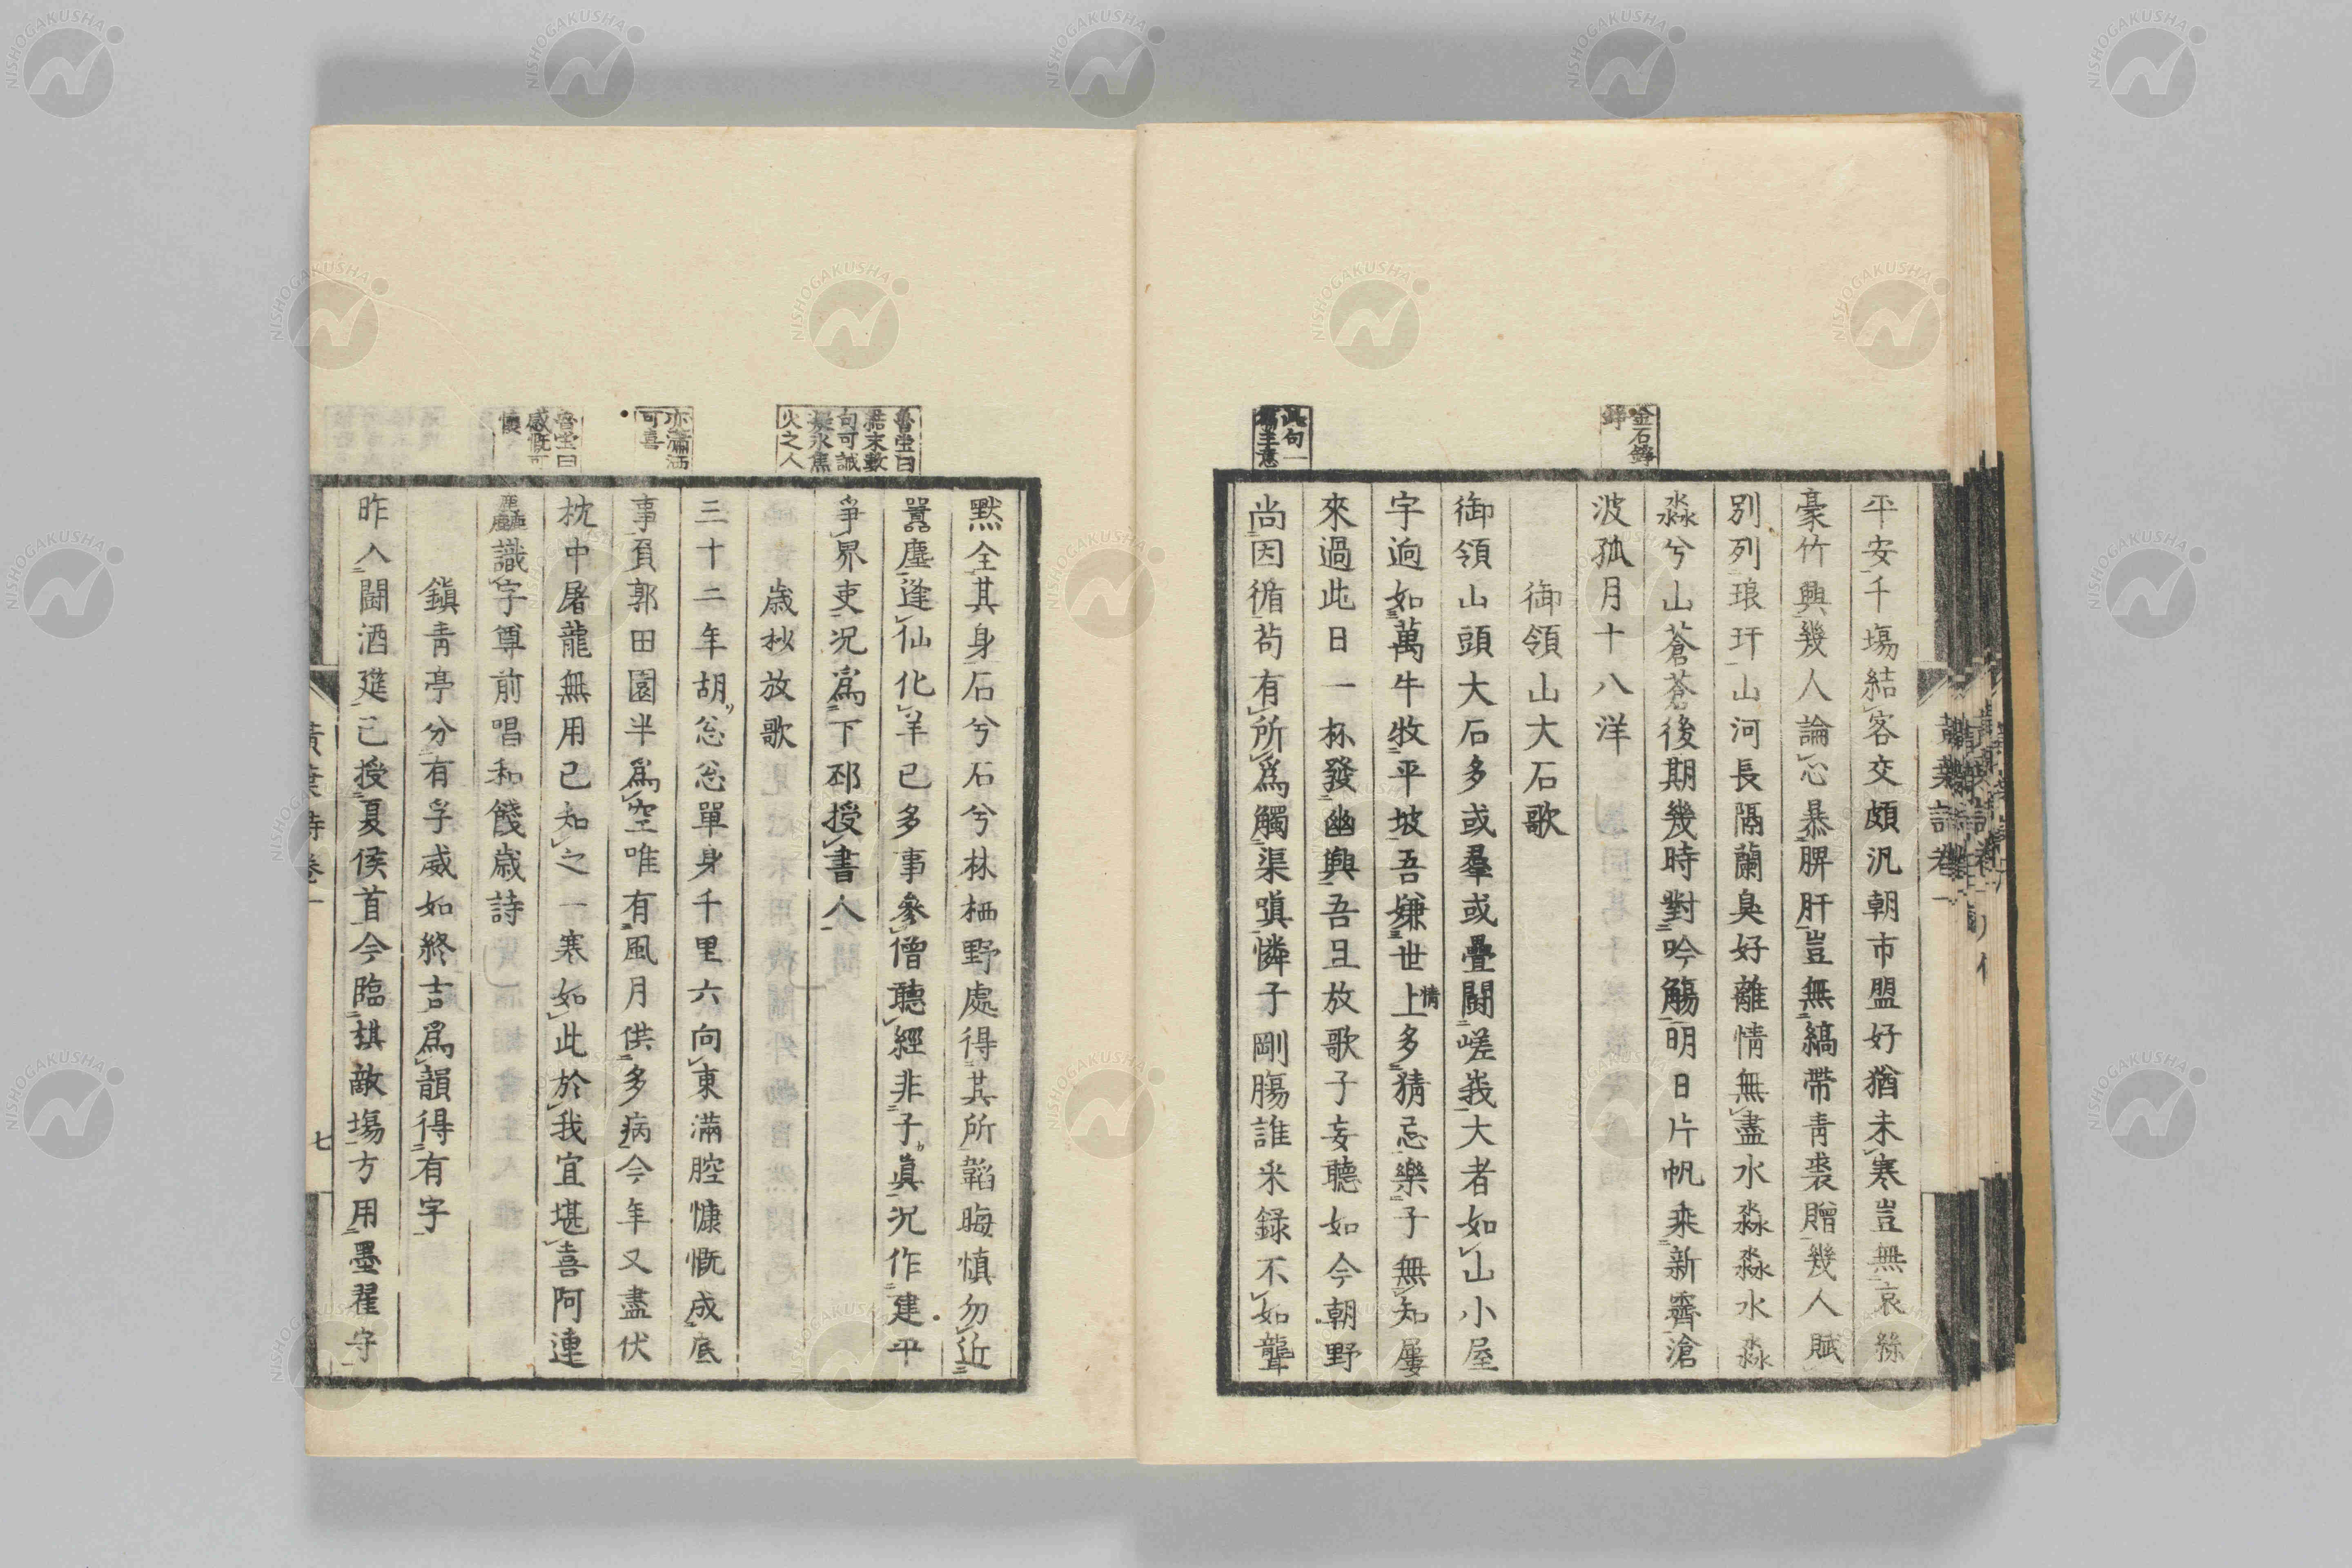 金石錚
錚
平安千塲結客交頗汎朝市盟好猶未寒豈無哀絲
豪竹興幾人論心暴脾肝豈無縞帶青裘贈幾人賦
別列琅玕山河長隔蘭臭好離情無盡水淼淼水淼
淼兮山蒼蒼後期幾時對吟觴明日片帆乘新霽滄
波孤月十八洋
御領山大石歌
御領山頭大石多或羣或疊鬪嵯峩大者如山小屋
宇逈如萬牛牧平坡吾嫌世上情多猜忌樂子無知屢
來過此日一杯發幽興吾且放歌子妄聽如今朝野
此句一
篇主意
尚因循苟有所爲觸渠嗔憐子剛膓誰采録不如聾
默全其身石兮石兮林栖野處得其所韜晦慎勿近
魯堂曰
結末數
句可誡
擬永焦
火之人
囂塵逢仙化羊已多事參僧聽經非子眞况作建平
爭界吏况爲下邳授書人
歲杪放歌
三十二年胡忩忩單身千里六向東滿腔慷慨成底
亦瀟洒
可喜
事負郭田園半爲空唯有風月供多病今年又盡伏
魯堂曰
感慨可
懷
枕中屠龍無用已知之一寒如此於我宜堪喜阿連
麤識字尊前唱和餞歲詩
鎮青亭分有孚威如終吉爲韻得有字
昨入鬪酒筵已授夏侯首今臨棋敵塲方用墨翟守
黃葉詩卷一
七